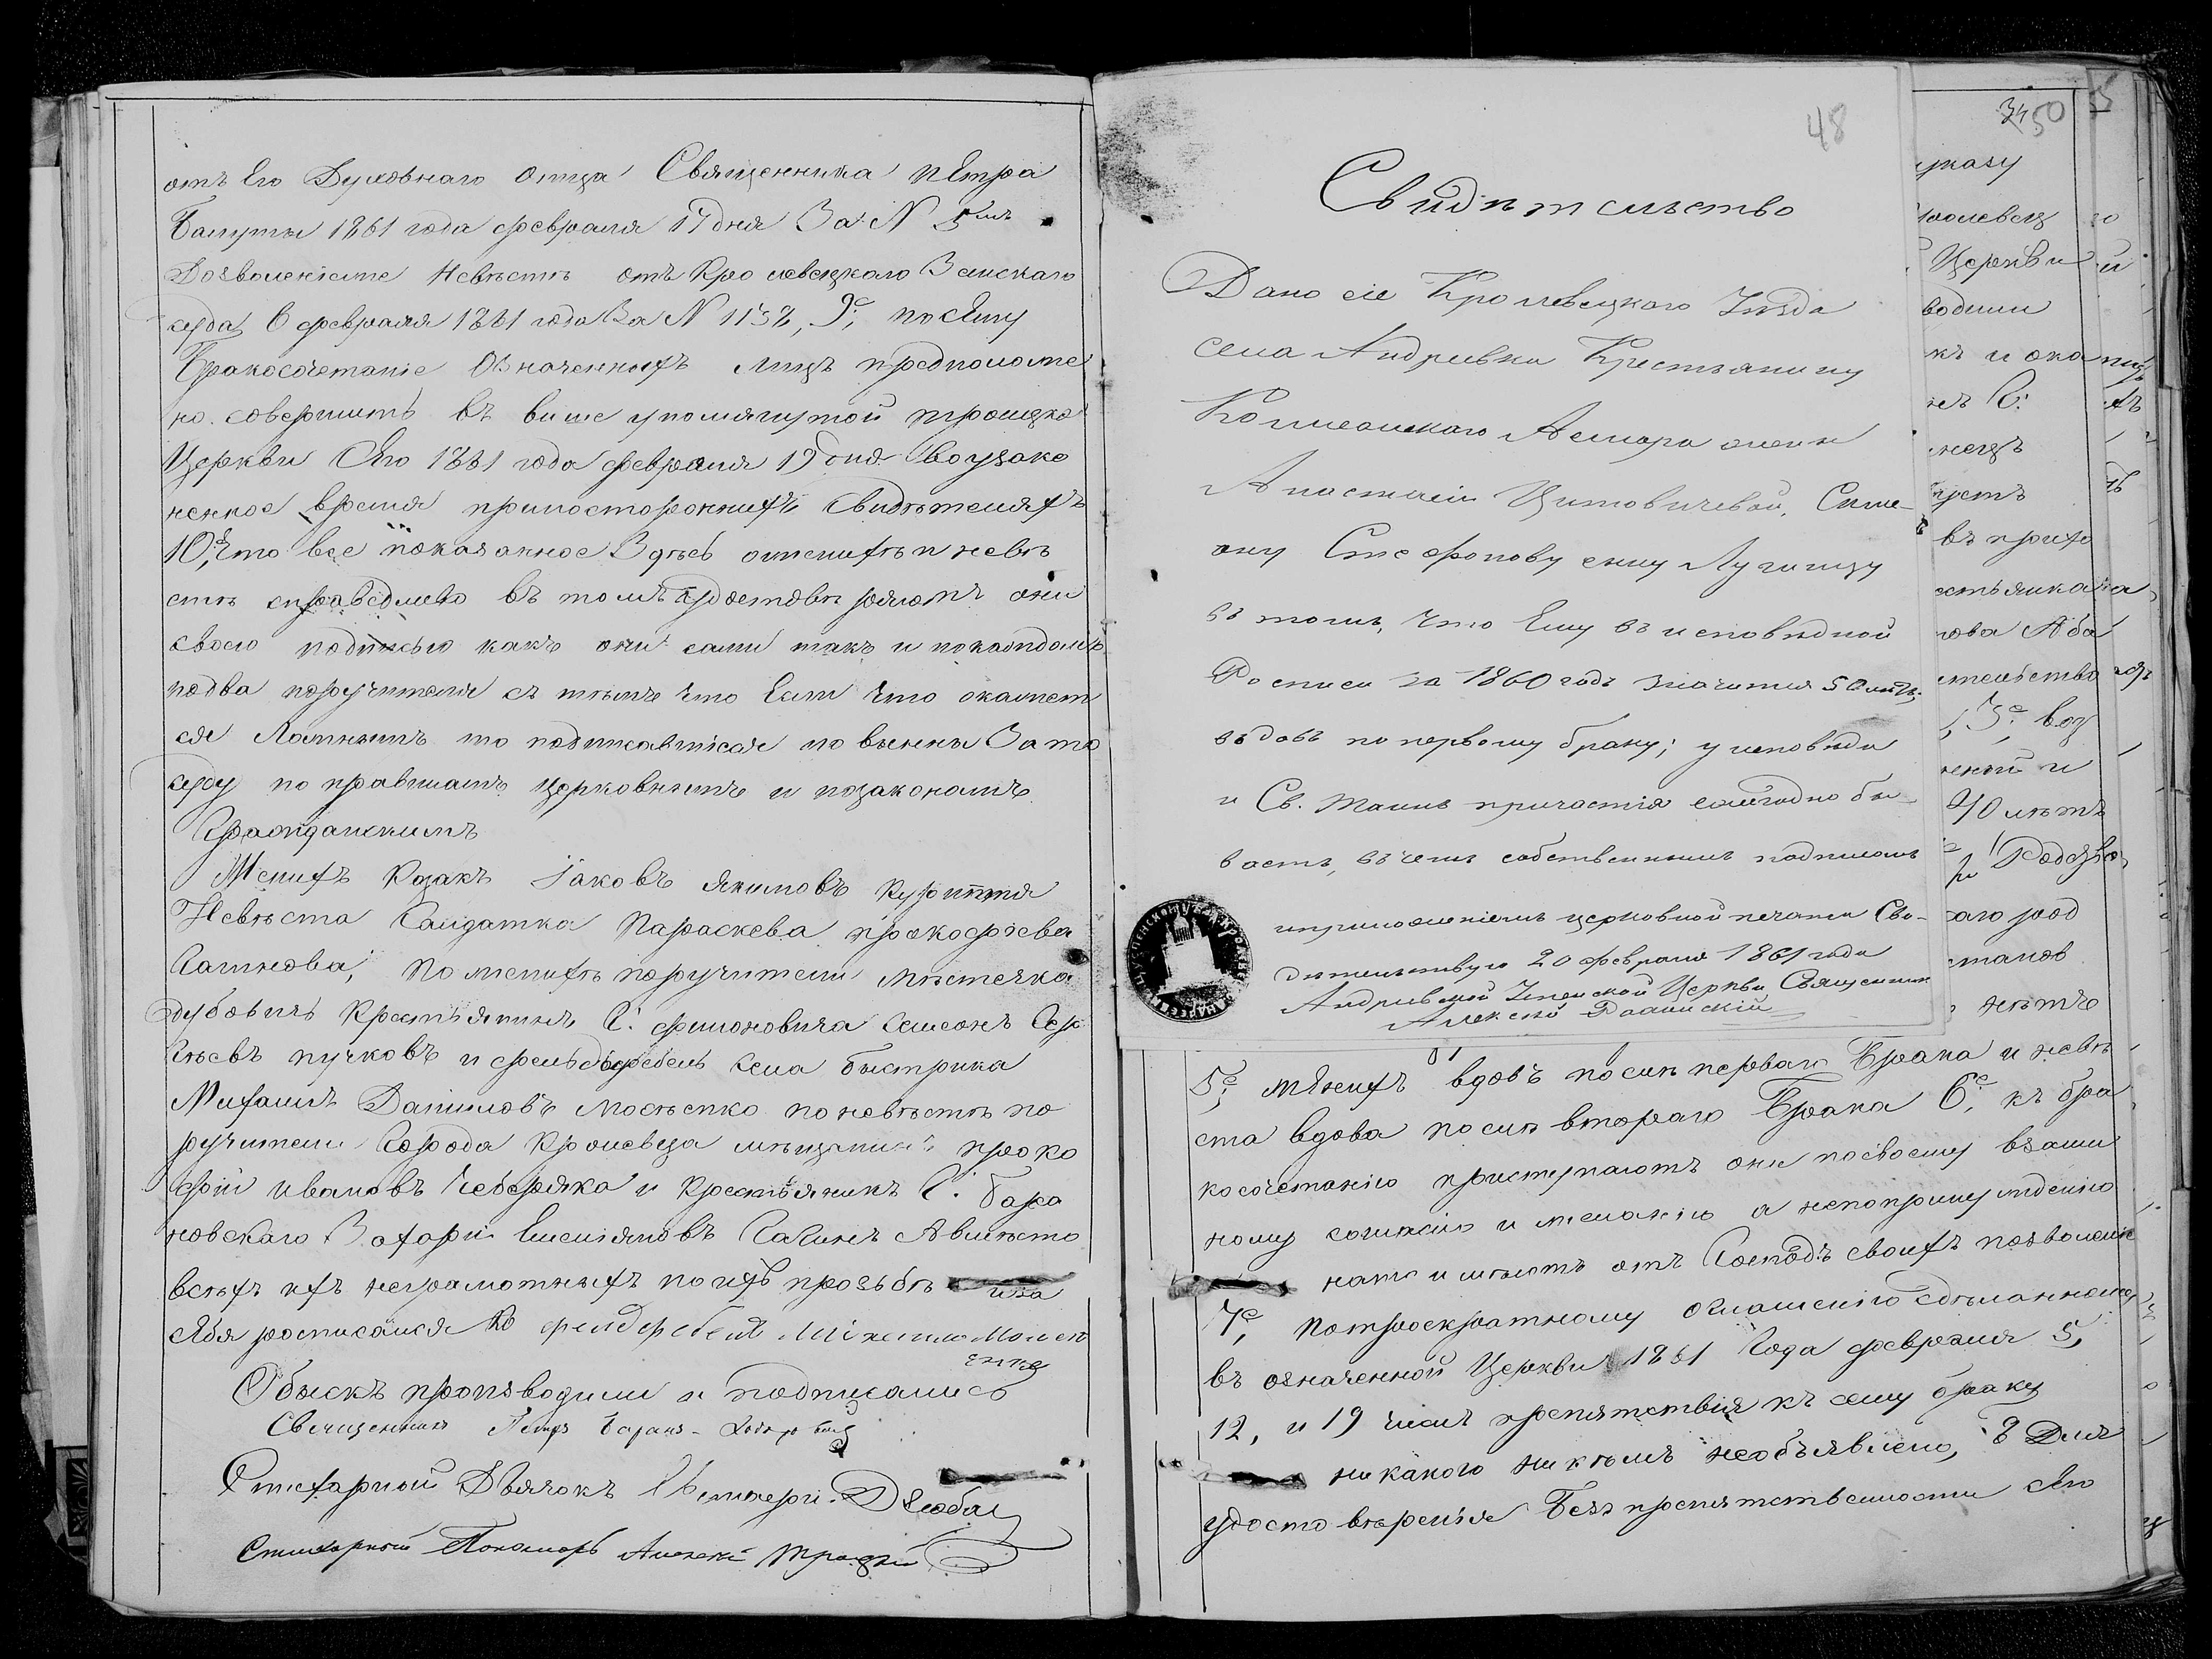 отъ Его Духовнаго отца Священника пЕтра
1861 года февраля 17 дня За N 5мъ
Дозволеніеже Невѣстѣ отъ Кролевецкаго Земскаго
суда 6 февраля 1861 года За N 1132, 9е, посЕму
Бракосочетаніе Означенныхъ лицъ предположе
но совершить въ више упомянутой троицко
Церкви СЕго 1861 года февраля 19 дня воузако
ненное время припостороннихъ Свидѣтеляхъ
10,е Что все показанное Здѣсь оженихѣ и невѣ
стѣ справедливо въ томъ удостовѣряютъ они
своею подписью какъ они сами такъ и покаждомъ
подва поручителя съ тѣмъ что Если Что окажет
ся Ложнымъ то подписавшіеся повынны За то
суду по правиламъ Церковнымъ и позаконамъ
Гражданскимъ
Женихъ Козакъ Іаковъ Якимовъ
Невѣста Салдатка Параскева прокофіева
По женихѣ поручители мѣстечка
дубовичъ Крестьянинъ Г. филоновича Самсонъ Сер
гѣевъ пучковъ и фельдфебель села быстрика
Михаилъ Даниловъ Мосѣенко по невѣстѣ по
ручители Города Кролевца мѣщанинъ проко
фій ивановъ Чебсряка и Крестьянинъ Г. Бара
новскаго Захарій Емельяновъ Авмѣсто
всѣхъ ихъ неграмотныхъ по ихъ прозьбѣ иза
сЕбя росписался
енко
Обыскъ производили и подписались
Священникъ Петръ
Стихарной Дьячокъ Дзюба
Стихарный Пономарь Алексѣй Троцкій
48
Свидѣтельство
Дано сіе Кролевецкаго Уѣзда
села Андреевки Крестьянину
Колежскаго Асесора жены
Анастасіи Цитовичевой, Симе-
ону Стефанову сыну Лугинцу
въ томъ, что Ему въ исповѣдной
Росписи за 1860 годъ значится 50 лѣтъ,
вдовъ по первому браку; у исповѣди
и Св. Таинъ причастія ежегодно бы-
ваетъ, въ чемъ собственнымъ подписомъ
иприложеніемъ церковной печати Сви-
дѣтельствую 20 февраля 1861 года
Андреевской Успенской Церкви Священникъ
Алексѣй
5е, жЕнихъ вдовъ послѣ перваго Брака и невѣ
ста вдова послѣ втораго Брака 6е, къ бра
косочетанію приступаютъ они посвоему взаим
ному согласію и желанію а непопринужденію
нато имѣютъ отъ Господъ своихъ позволеніе
7е, потроекратному оглашенію сдѣланному
въ означенной Церкви 1861 Года февраля 5,
12, и 19 чиселъ препятствія къ сему браку
никакого никѣмъ необъявлено, 8 Для
удостовѣренія Безпрепятственности сЕго
50
указу
Церкви
водили
къ и ока
въ прихо
40 лѣтъ